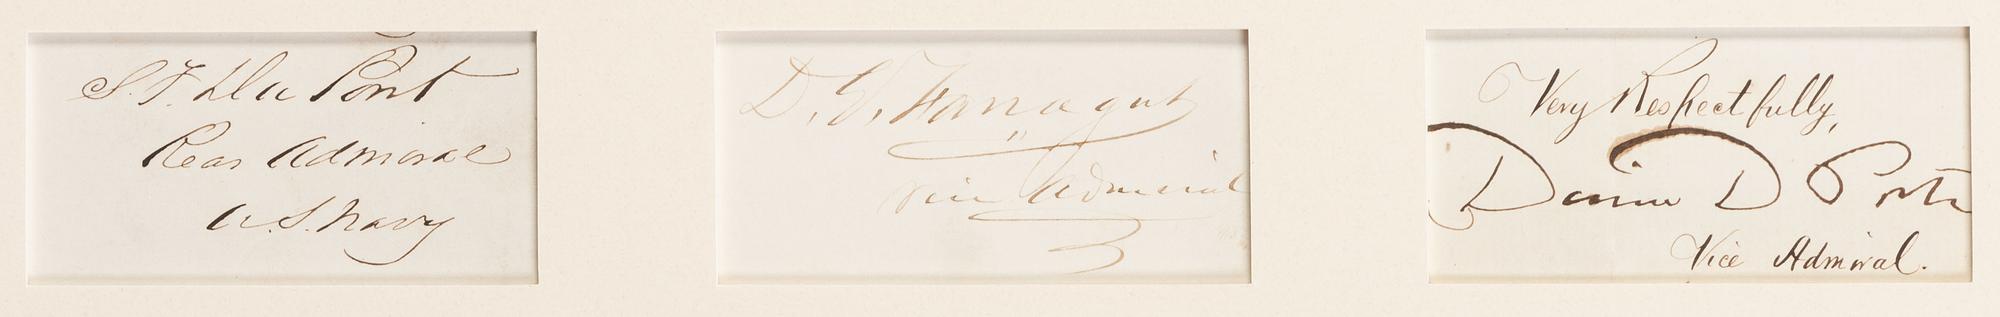 S. F. Du Pont
Rear Admiral
U. S. Navy
D. G. Farragut
Vice Admiral
Very Respectfully,
David D Porter
Vice Admiral.